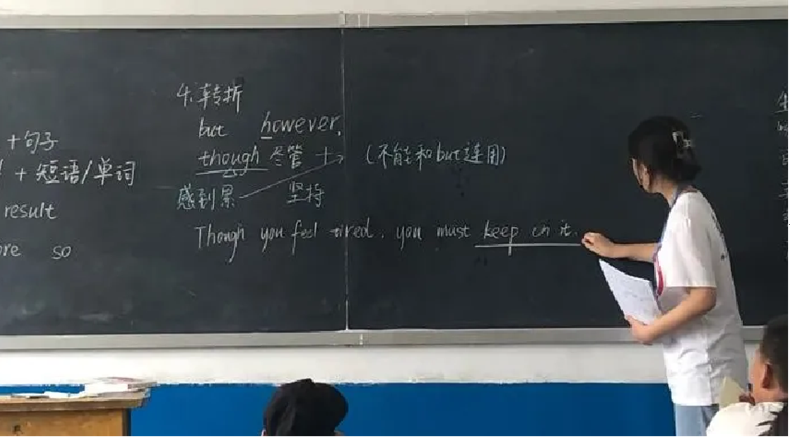 +句子
+ 短语/单词
result
so
4. 转折
but however,
though 尽管 + (不能和but连用)
感到累 坚持
Though you feel tired, you must keep on it.